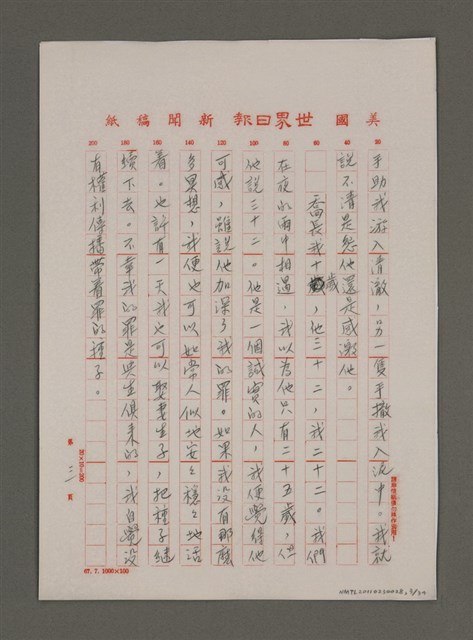 美國世界日報新聞稿紙
20 40 60 80 100 120 140 160 180 200
手助我游入清澈，另一隻手撤我入泥中。我就
說不清是怨他還是感激他。
喬長我十歲，他三十二，我二十二。我們
在夜的雨中相遇，我以為他只有二十五歲，但
他說三十二。他是一個誠實的人，我便覺得他
可感，雖說他加深了我的罪。如果我沒有那麼
多累想，我便也可以如常人似地安安穩穩地活
着。也許有一天我也可以娶妻生子，把種子繼
續下去。不幸我的罪是與生俱來的，我自覺沒
有權利傳播帶着罪的種子。
第三頁
67.7.1000×100
NMTL20110250028